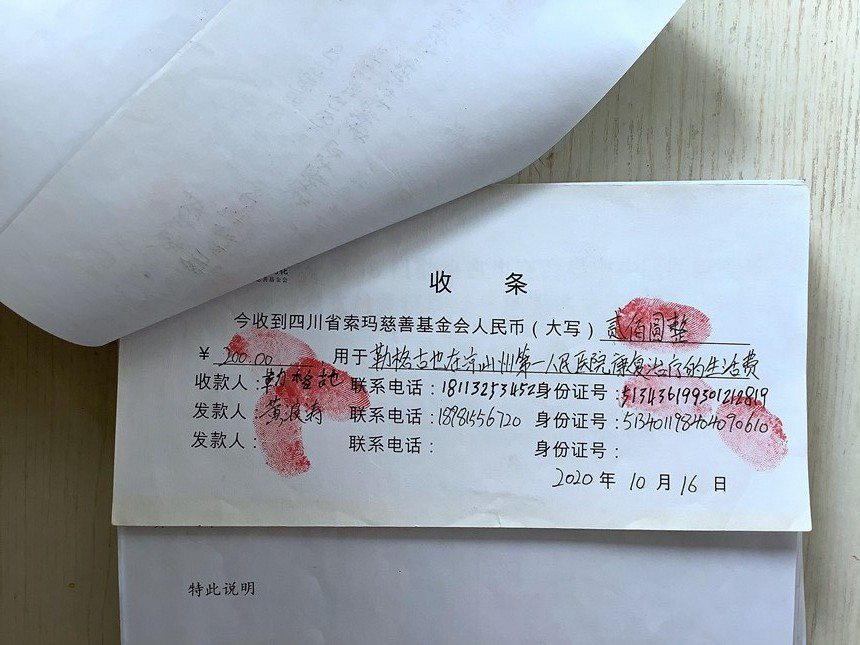 慈善基金会
收 条
今收到四川省索玛慈善基金会人民币（大写）贰佰圆整
¥ 200.00 用于勒格古也在凉山州第一人民医院康复治疗的生活费
收款人：勒格地 联系电话：18113253452 身份证号：513436199301212819
发款人：黄 联系电话：18981556720 身份证号：513401198404090610
发款人： 联系电话： 身份证号：
2020 年 10 月 16 日
特此说明